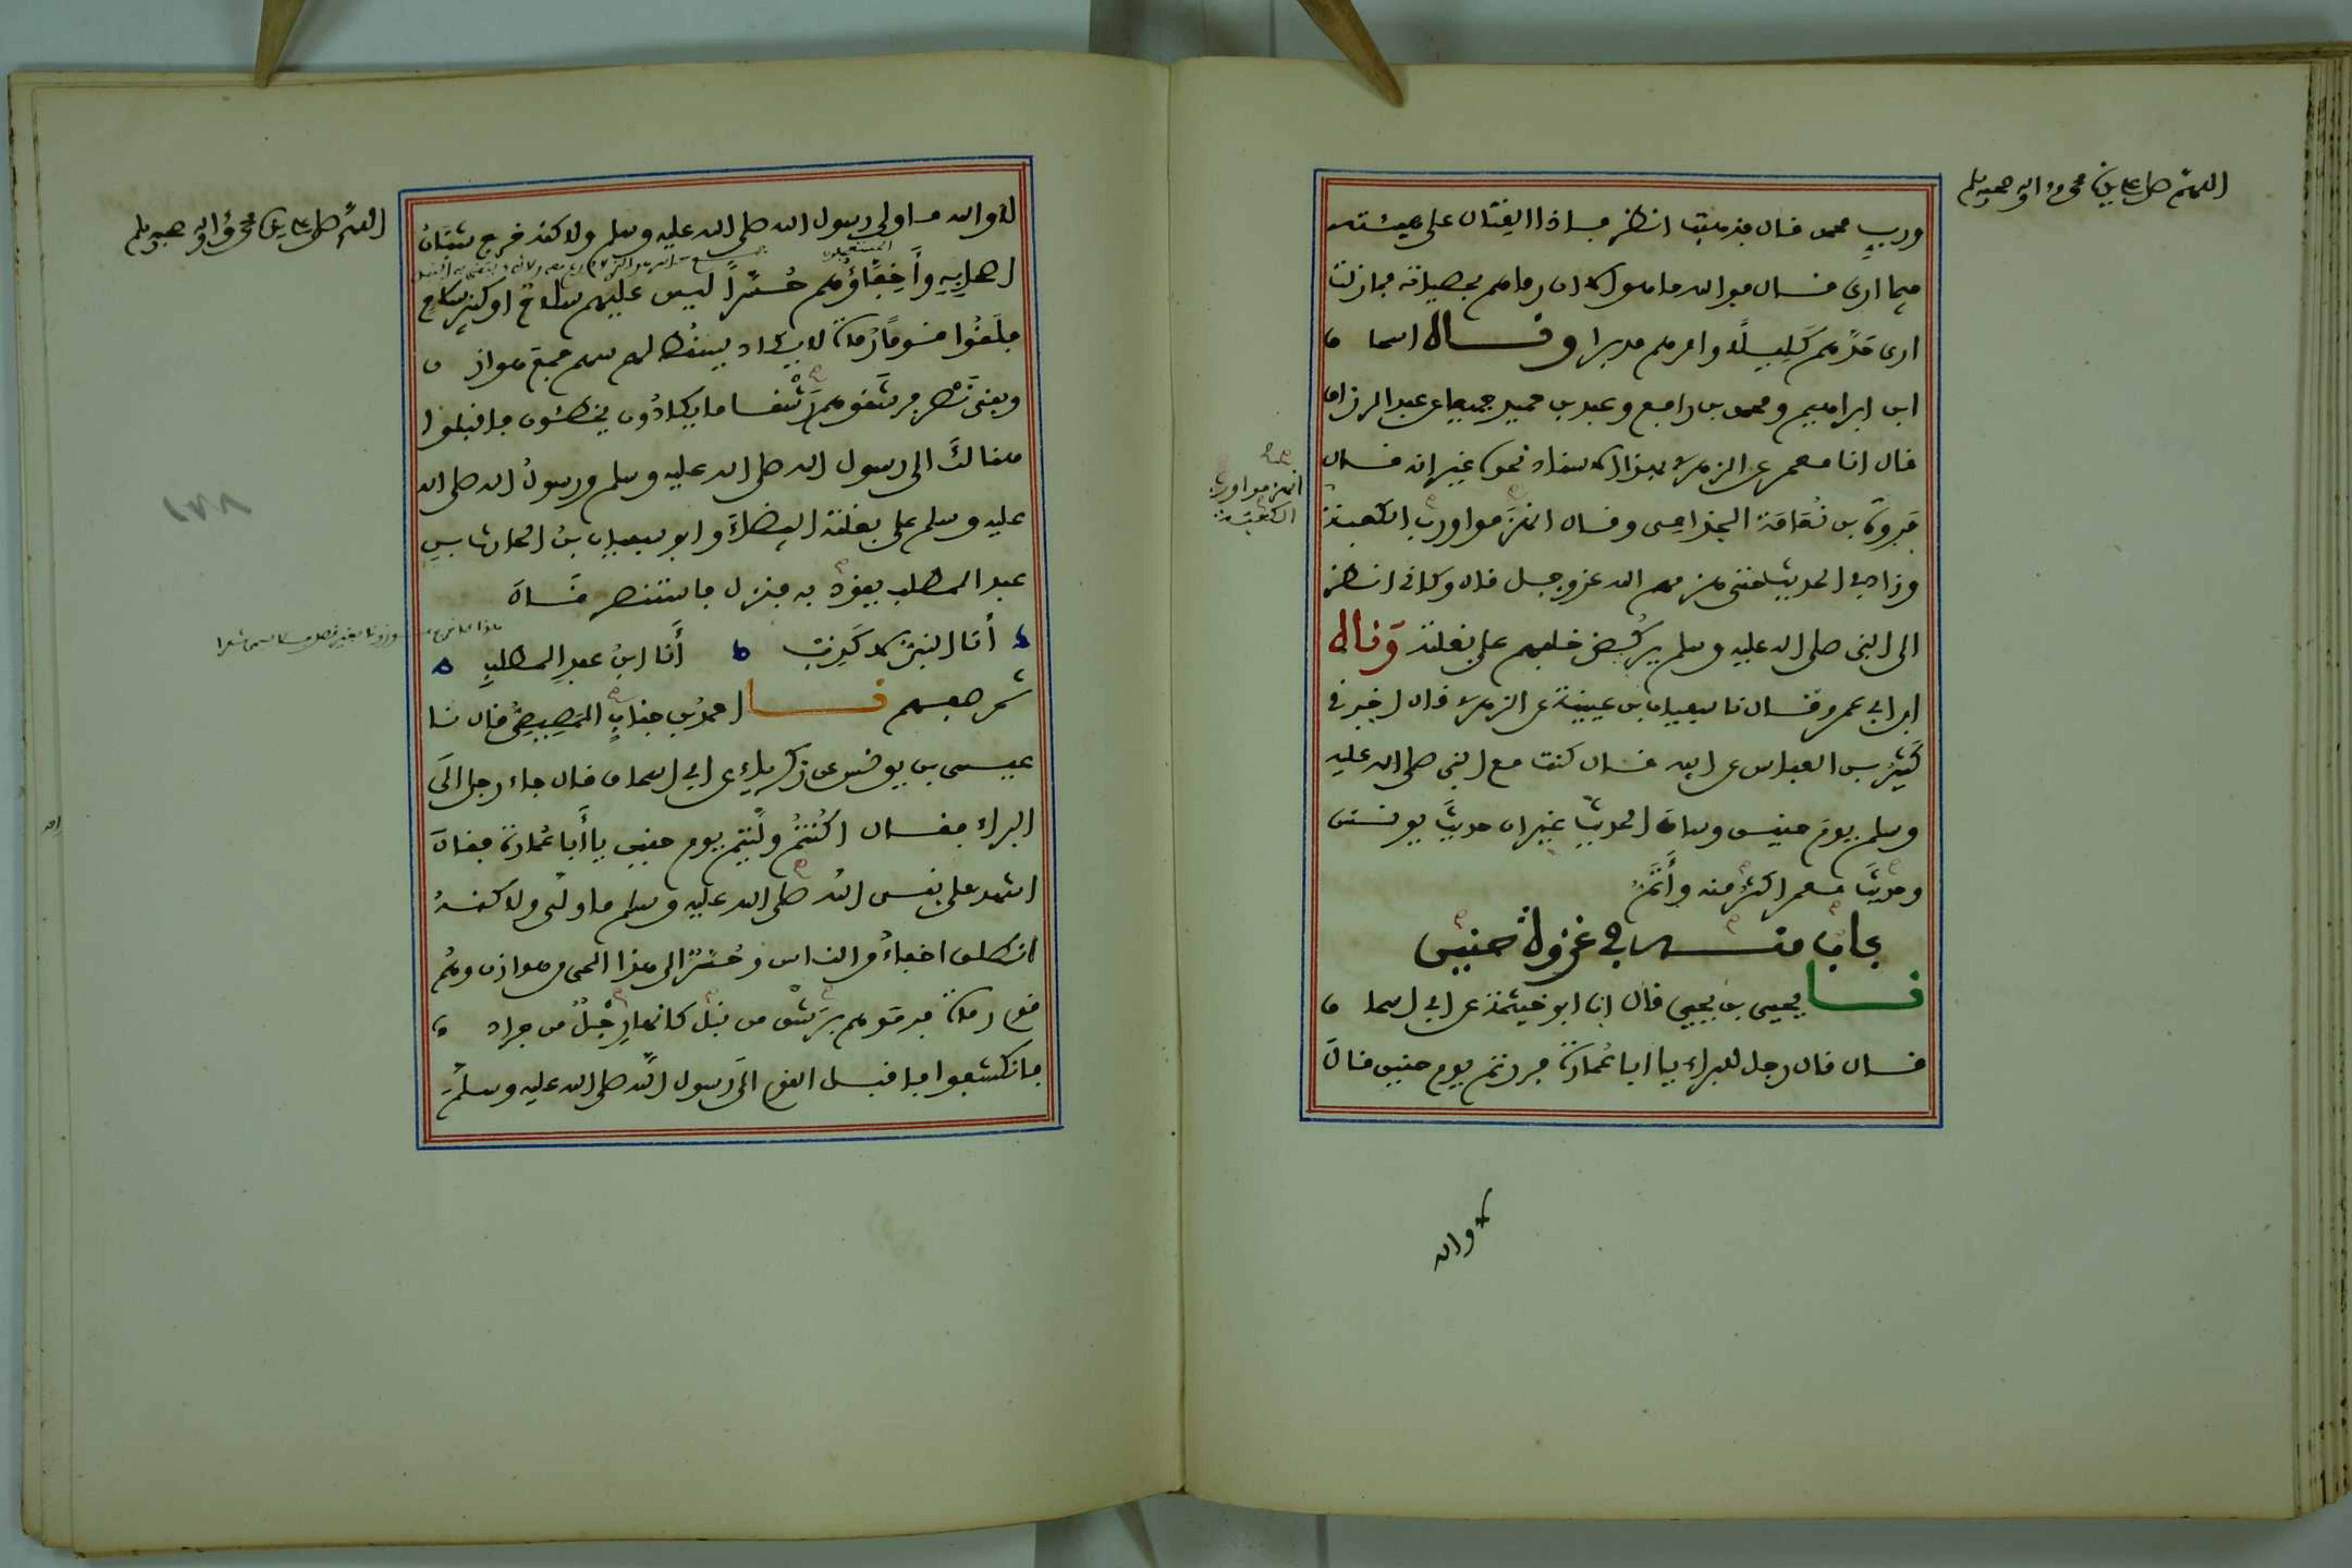 اللهم صل على سيدنا محمد وآله وصحبه وسلم
ورب محمد قال فذهبت انظر فإذا القتال على هيئته
فيما ارى قال فوالله ما هو الا ان رماهم بحصياته فمازلت
ارى حدهم كليلا وامرهم مدبرا وقال اسحاق
ابن ابراهيم ومحمد بن رافع وعبد بن حميد جميعا عن عبد الرزاق
قال انا معمر عن الزهري بهذا الاسناد نحوه غير انه قال
فروة بن نعامة الجذامي وقال انهزموا ورب الكعبة
انهزموا ورب
الكعبة
وزاد في الحديث حتى هزمهم الله عز وجل قال وكأني انظر
الى النبي صلى الله عليه وسلم يركض خلفهم على بغلته وقال
ابن ابي عمر وقال نا سفيان بن عيينة عن الزهري قال اخبرني
كثير بن العباس عن ابيه قال كنت مع النبي صلى الله عليه
وسلم يوم حنين وساق الحديث غير ان حديث يونس
وحديث معمر اكثر منه وأتم
باب منه في غزوة حنين
نا يحيى بن يحيى قال انا ابو خيثمة عن ابي اسحاق
قال قال رجل للبراء يا ابا عمارة فررتم يوم حنين قال
لا والله
اللهم صل على سيدنا محمد وآله وصحبه وسلم
لا والله ما ولى رسول الله صلى الله عليه وسلم ولاكنه خرج شبان
اصحابه وأخفاؤهم حسرا ليس عليهم سلاح او كثير سلاح
فلقوا قوما رماة لا يكاد يسقط لهم سهم جمع هوازن
وبني نصر فرشقوهم رشقا ما يكادون يخطئون فاقبلوا
هنالك الى رسول الله صلى الله عليه وسلم ورسول الله صلى الله
عليه وسلم على بغلته البيضاء وابو سفيان بن الحارث بن
عبد المطلب يقود به فنزل فاستنصر قال
أنا النبي لا كذب أنا ابن عبد المطلب
ثم صفهم نا احمد بن جناب المصيصي قال نا
عيسى بن يونس عن زكرياء عن ابي اسحاق قال جاء رجل الى
البراء فقال اكنتم وليتم يوم حنين يا أبا عمارة فقال
اشهد على نبي الله صلى الله عليه وسلم ما ولى ولاكنه
انطلق اخفاء من الناس وحسر الى هذا الحي من هوازن وهم
قوم رماة فرموهم برشق من نبل كانها رجل من جراد
فانكشفوا فاقبل القوم الى رسول الله صلى الله عليه وسلم